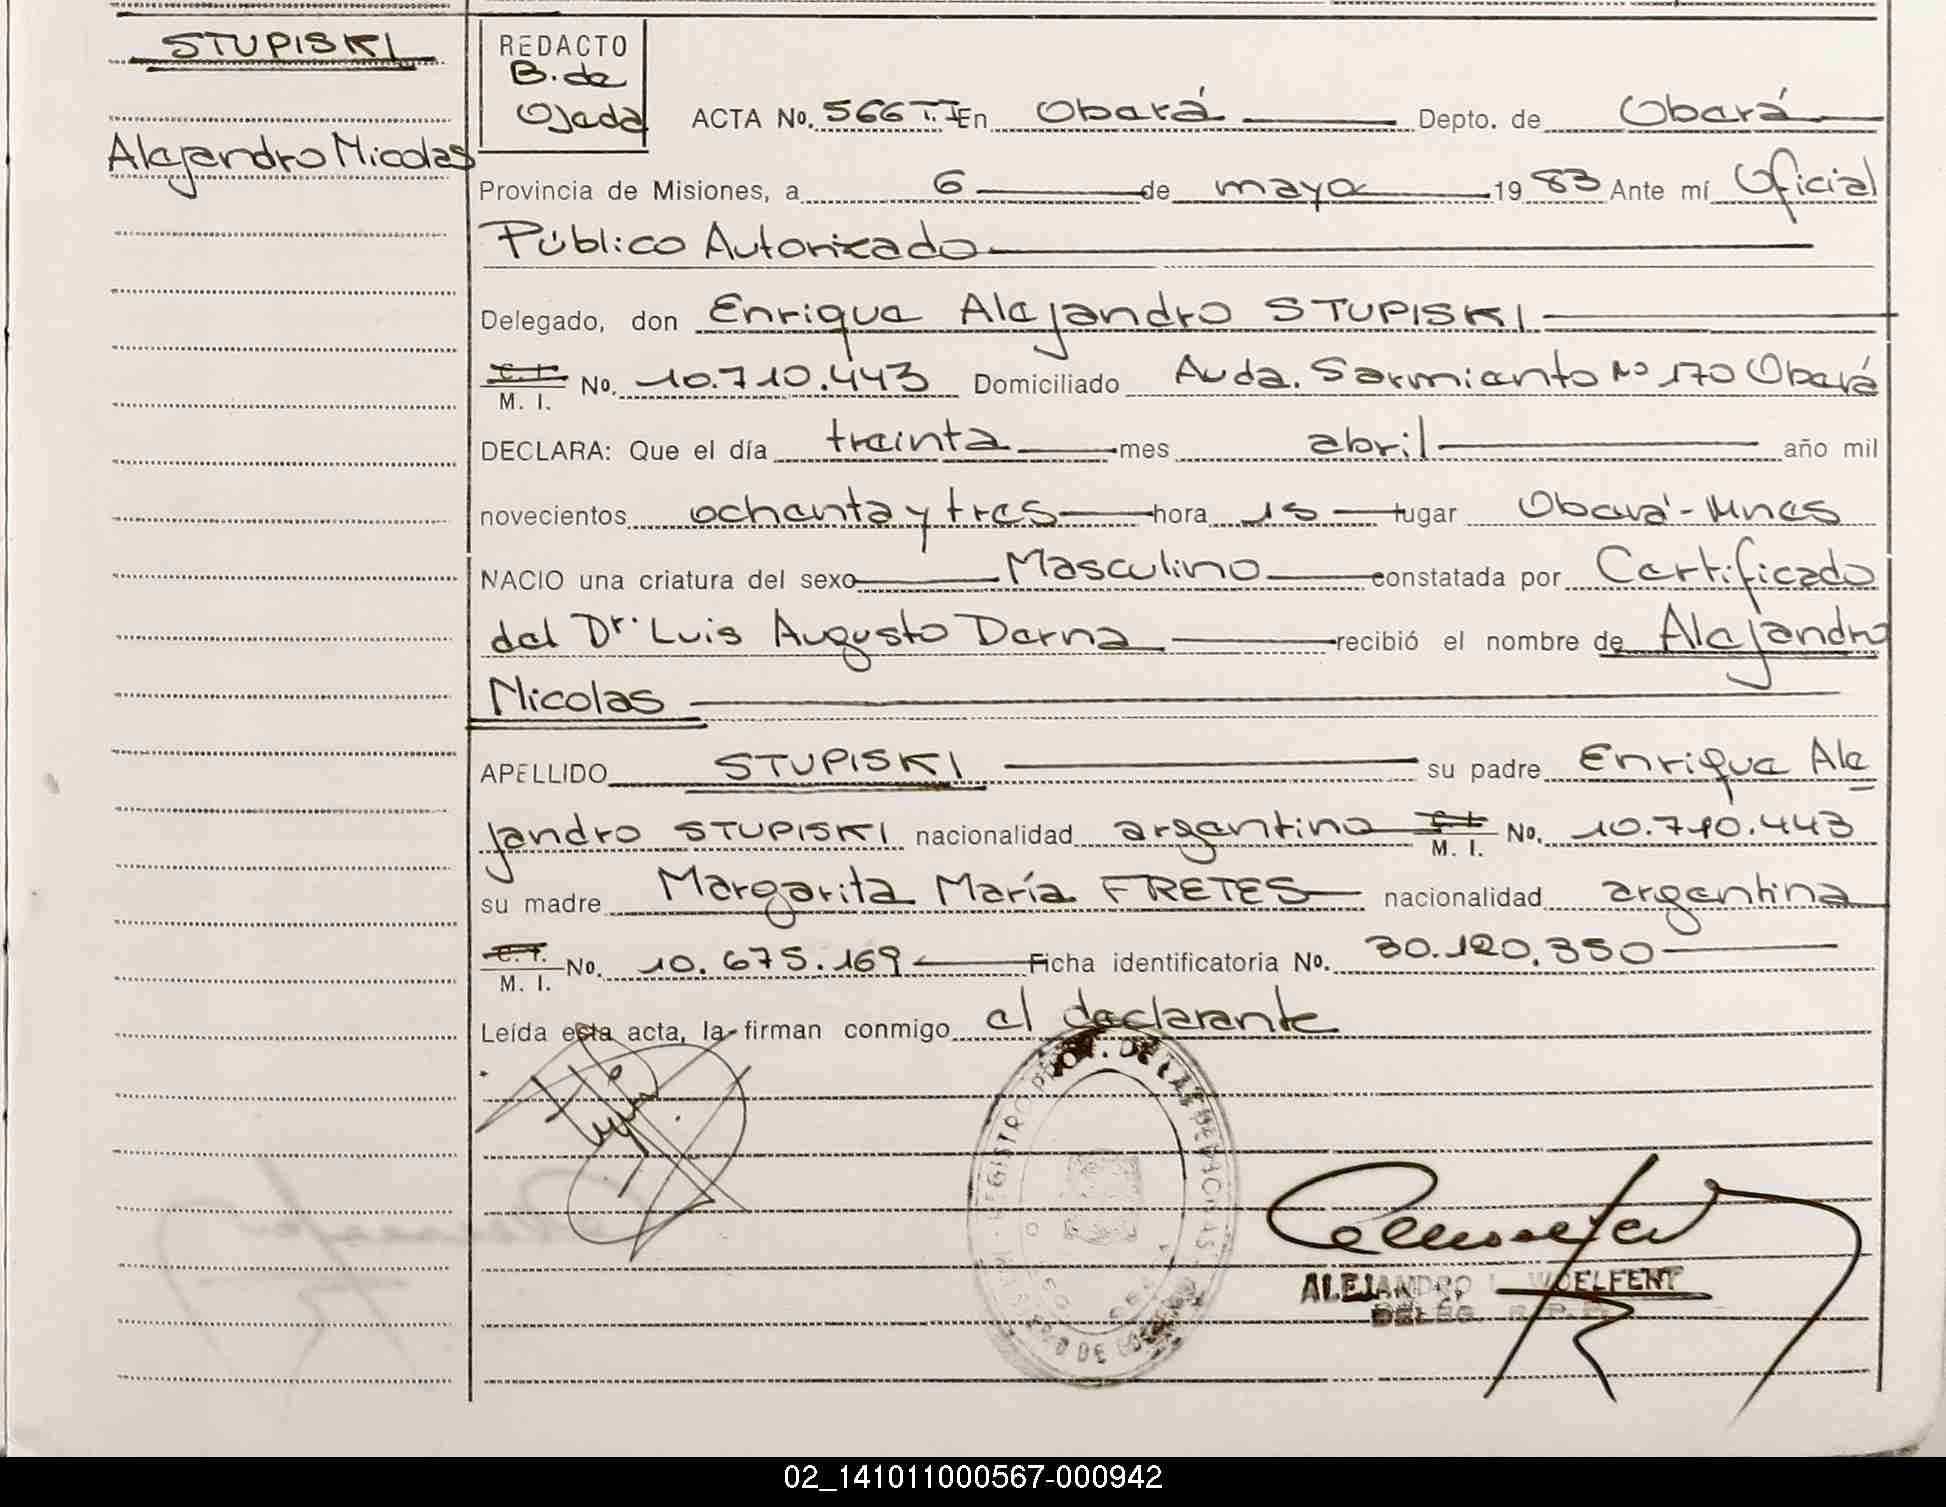 STUPISKI
Alejandro Nicolas
REDACTO
B. de
Ojeda
ACTA No. 566 T.I En Oberá Depto. de Oberá
Provincia de Misiones, a 6 de mayo 1983 Ante mí Oficial
Público Autorizado
Delegado, don Enrique Alejandro STUPISKI
C. I.
M. I. No. 10.710.443 Domiciliado Avda. Sarmiento No 170 Oberá
DECLARA: Que el día treinta mes abril año mil
novecientos ochenta y tres hora 15 lugar Oberá - Mnes
NACIO una criatura del sexo Masculino constatada por Certificado
del Dr. Luis Augusto Derna recibió el nombre de Alejandro
Nicolas
APELLIDO STUPISKI su padre Enrique Ale
jandro STUPISKI nacionalidad argentino C. I. M. I. No. 10.710.443
su madre Margarita María FRETES nacionalidad argentina
C. I.
M. I. No. 10.675.169 Ficha identificatoria No. 30.120.350
Leída esta acta, la firman conmigo el declarante
REGISTRO PROV. DE LAS PERSONAS
ALEJANDRO L. WOELFERT
DELEG. R.P.P.
02_141011000567-000942